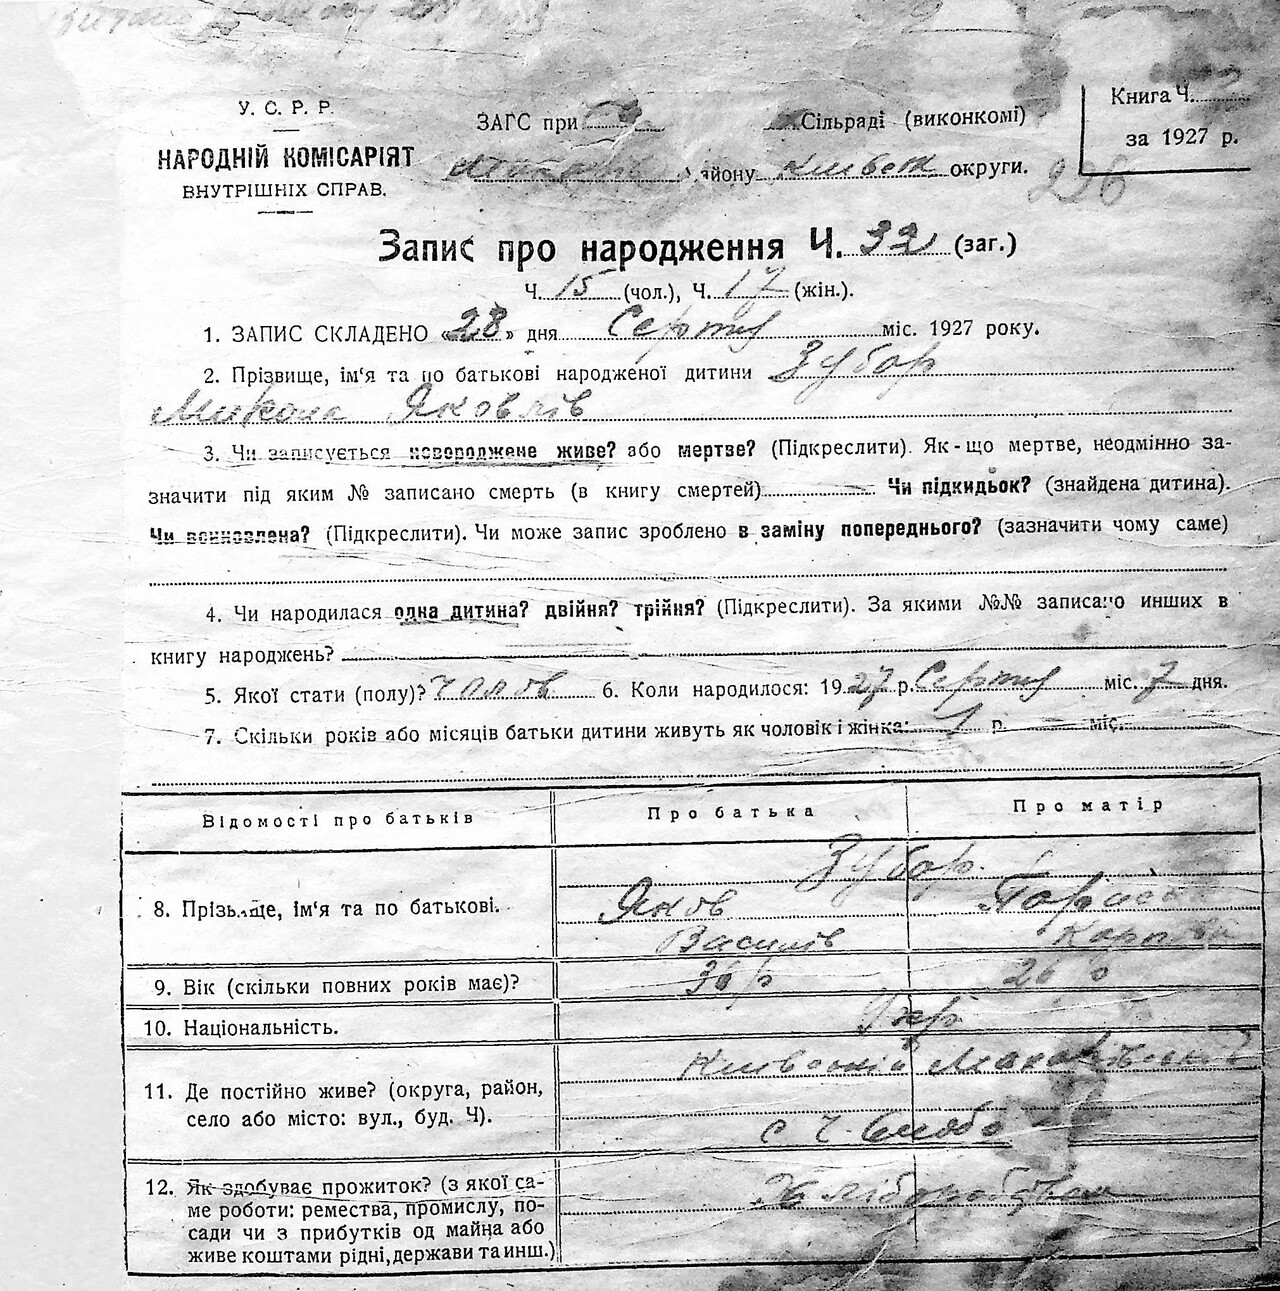 У. С. Р. Р.
НАРОДНІЙ КОМІСАРІЯТ
ВНУТРІШНІХ СПРАВ.
ЗАГС при Сільраді (виконкомі)
району Київськ округи.
Книга Ч.
за 1927 р.
226
Запис про народження Ч. 32 (заг.)
Ч. 15 (чол.), Ч. 17 (жін.).
1. ЗАПИС СКЛАДЕНО «28» дня Серпня міс. 1927 року.
2. Прізвище, ім‘я та по батькові народженої дитини Зубар
Микола Яковлів
3. Чи записується новороджене живе? або мертве? (Підкреслити). Як-що мертве, неодмінно за-
значити під яким № записано смерть (в книгу смертей) Чи підкидьок? (знайдена дитина).
Чи вснновлена? (Підкреслити). Чи може запис зроблено в заміну попереднього? (зазначити чому саме)
4. Чи народилася одна дитина? двійня? трійня? (Підкреслити). За якими №№ записано инших в
книгу народжень?
5. Якої стати (полу)? чолов 6. Коли народилося: 1927 р. Серпня міс. 7 дня.
7. Скільки років або місяців батьки дитини живуть як чоловік і жінка: 1 р. міс.
Відомості про батьків Про батька Про матір
Зубар
8. Прізвище, ім'я та по батькові. Яков Параска
Василів Карпівн
9. Вік (скільки повних років має)? 36 р 26 р
10. Національність. Укр
11. Де постійно живе? (округа, район, Київський Макарівський
село або місто: вул., буд. Ч). с Ч. Слобода
12. Як здобуває прожиток? (з якої са- Хліборобством
ме роботи: ремества, промислу, по-
сади чи з прибутків од майна або
живе коштами рідні, держави та инш.)